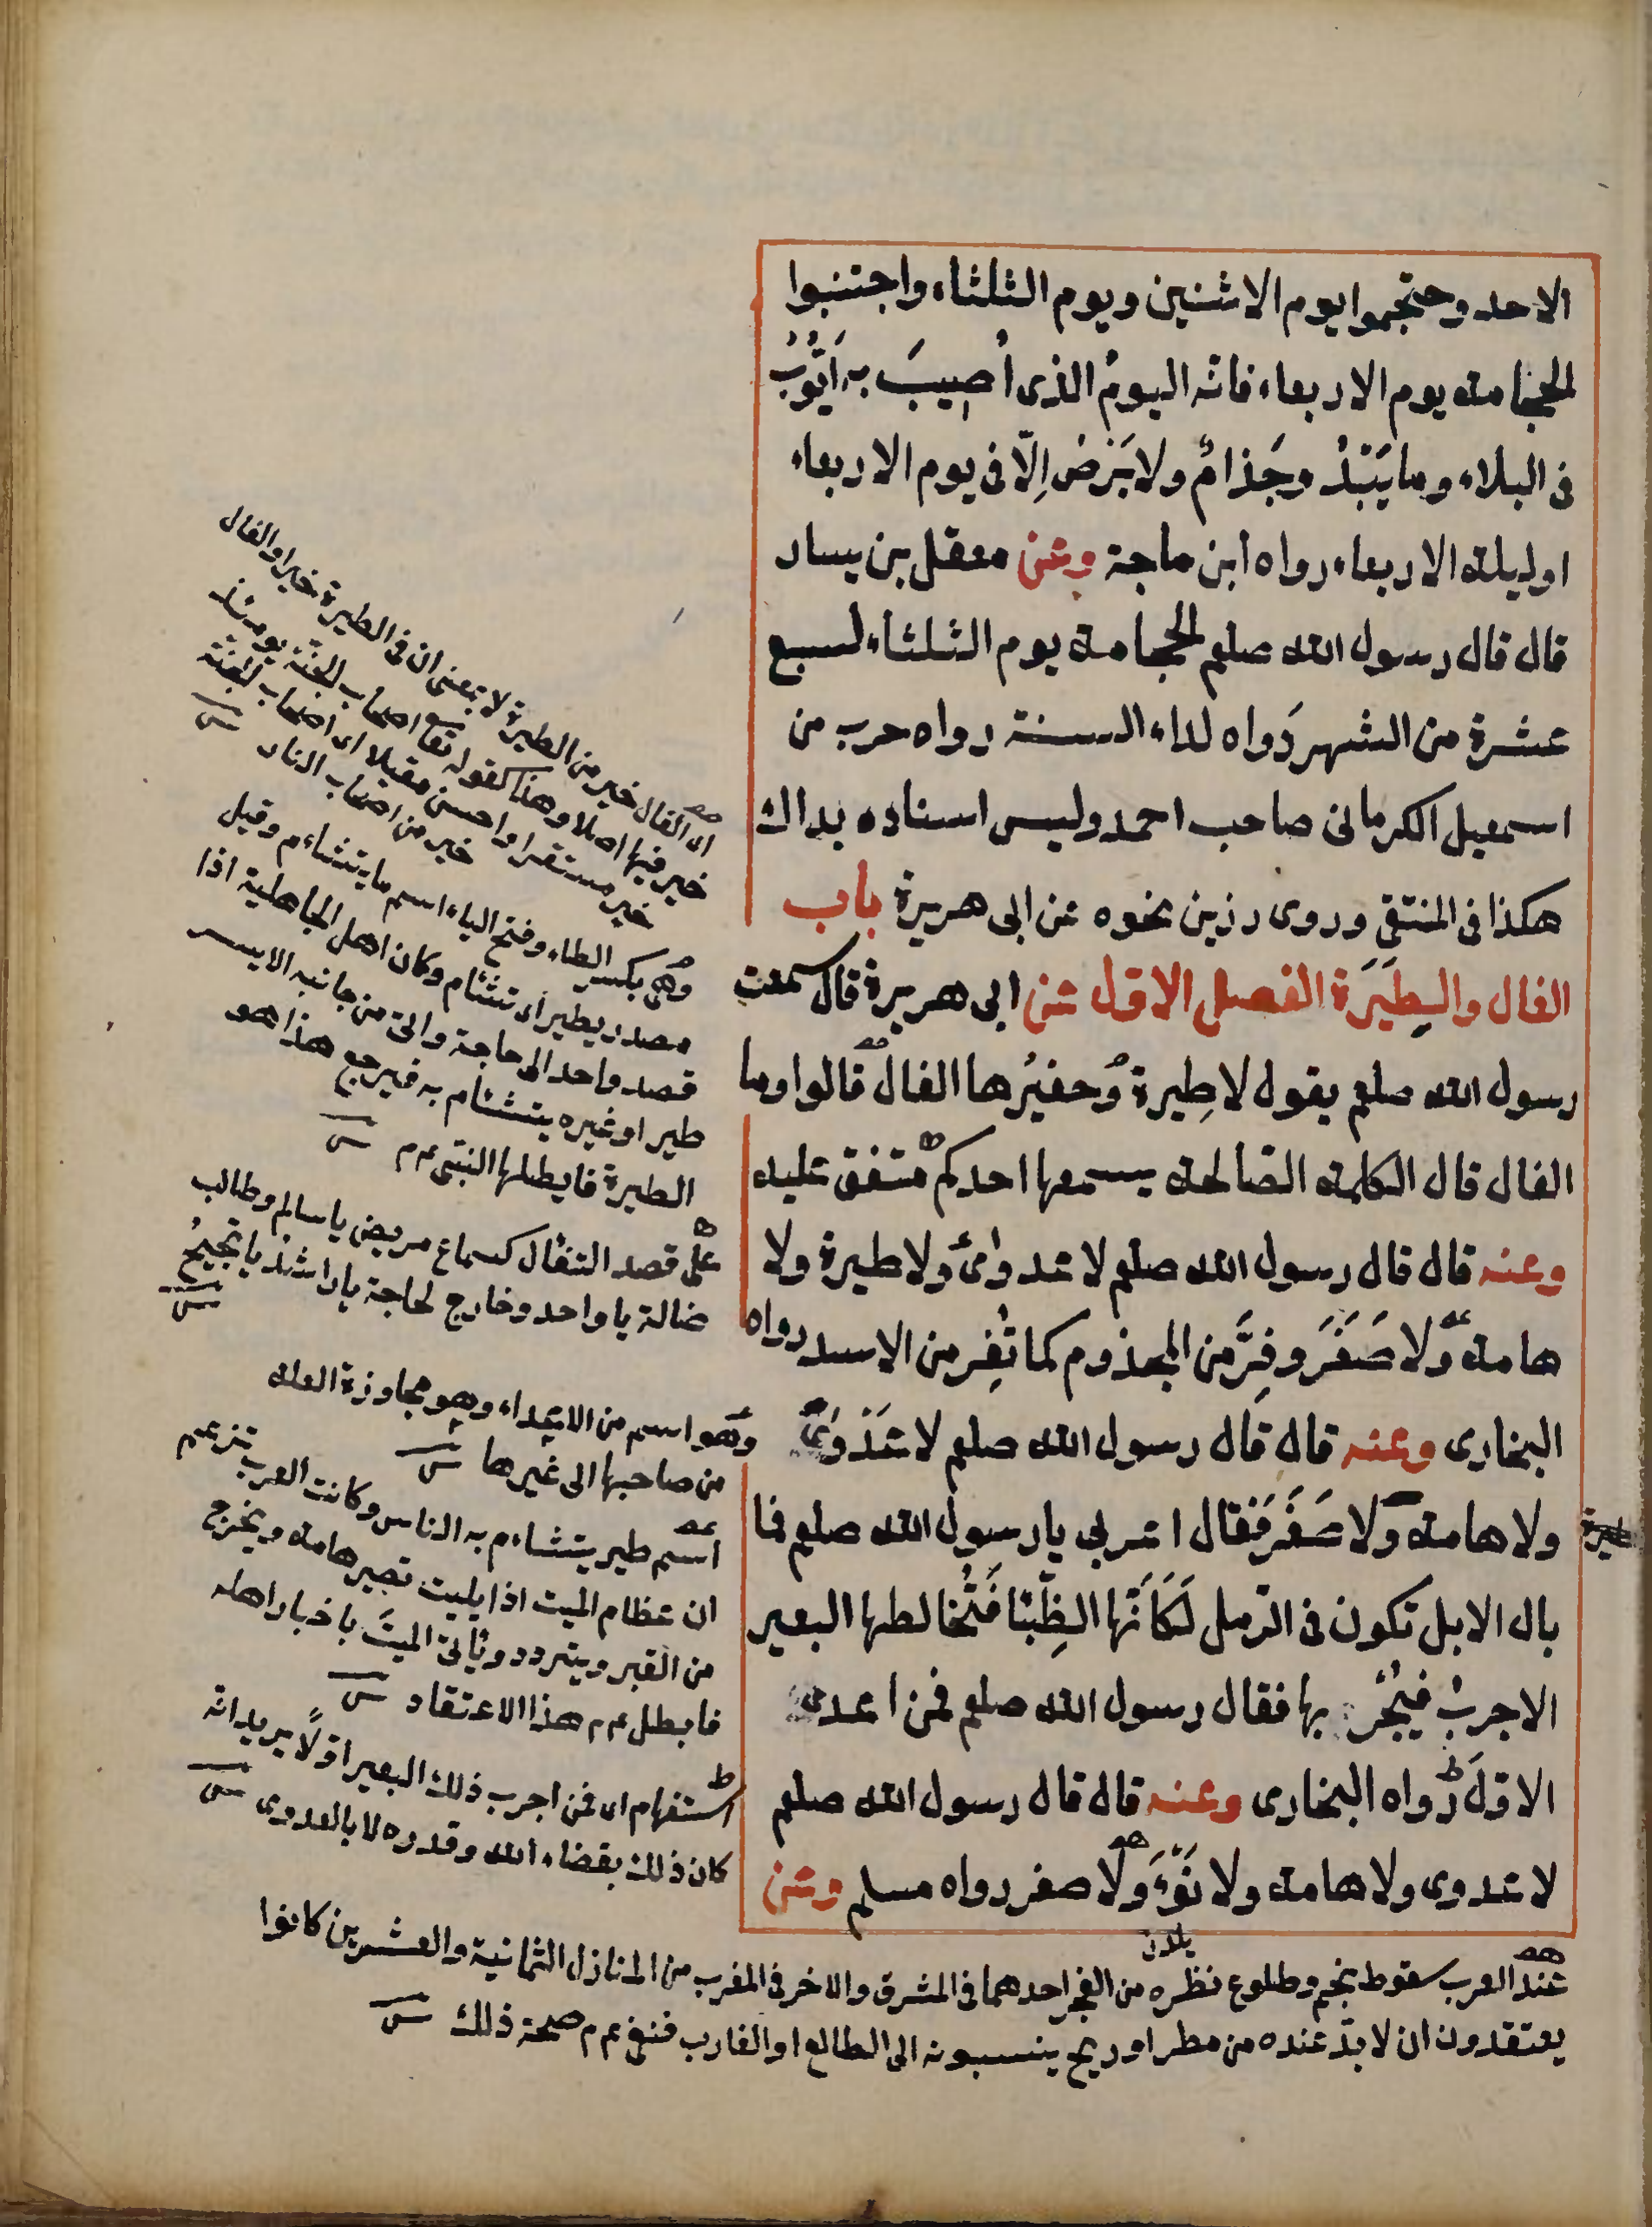 الاحد وحتجموا يوم الاثنين ويوم الثلثاء واجتنبوا
الحجامة يوم الاربعاء فانه اليومُ الذى اُصِيبَ به اَيُّوُبُ
فى البلاء وما يَبْدُ وجَذامٌ ولا بَرَصٌ اِلّا فى يوم الاربعاء
او ليلة الاربعاء رواه ابن ماجة وعن معقل بن يسار
قال قال رسول الله صلعم الحجامة يوم الثلثاء لسبع
عشرة من الشهر دَواه لداء السنة رواه حرب من
اسمعيل الكرمانى صاحب احمد وليس اسناده بداك
هكذا فى المنتقى وروى رزين نحوه عن ابى هريرة باب
الفال والطِيَرَة الفصل الاول عن ابى هريرة قال سمعت
رسول الله صلعم يقول لا طِيرة وُخفيرُها الفال قالوا وما
الفال قال الكلمة الصالحة يسمعها احدكم متفق عليه
وعنه قال قال رسول الله صلعم لا عدوىٰ ولا طيرة ولا
هامة ولا صَفَرَ وفِرَّ من المجذوم كما تُفِر من الاسد رواه
البخارى وعنه قال قال رسول الله صلعم لا عَدْوىٰ
ولا هامة ولا صَفَرَ فَقال اعربى يا رسول الله صلعم فما
طيرة
بال الابل تكون فى الرمل لَكَاَنَّها الظِّبْا فَتُخالطها البعير
الاجربُ فيُجْرِ بها فقال رسول الله صلعم فمن اعدى
الاولَ رواه البخارى وعنه قال قال رسول الله صلعم
لا عدوى ولا هامة ولا نَوْءَ ولا صفر رواه مسلم وعن
اى الفال خير من الطيرة لا بمعنى ان فى الطيرة خيرا والفال
خير فيها اصلا وهذا كقوله تعا اصحاب الجنة يومئذ
خير مستقرا واحسن مقيلا اى اصحاب الجنة
خير من اصحاب النار
وهى بكسر الطاء وفتح الياء اسم ما يتشاءم وقيل
مصدر يطير اى تشئام وكان اهل الجاهلية اذا
قصد واحد الى حاجة واتى من جانبه الايسر
طير او غيره يتشئام به فيرجع هذا هو
الطيرة فابطلها النبى عم
على قصد التفأل كسماع مريض يا سالم وطالب
ضالة يا واحد وخارج لحاجة يا راشد يا نجيحُ
وهو اسم من الاعداء وهو مجاوزة العلة
من صاحبها الى غيرها
اسم طير يتشاءم به الناس وكانت العرب تزعم
ان عظام الميت اذا بليت تصير هامة ويخرج
من القبر ويتردد وتأتى الميتَ باخبار اهله
فابطل عم هذا الاعتقاد
استفهام اى فمن اجرب ذلك البعير اولًا يريد انه
كان ذلك بقضاء الله وقدره لا بالعدوى
عند العرب سقوط نجم وطلوع نظره من الفجر احدهما فى المشرق والاخر فى المغرب من المنازل الثمانية والعشرين كانوا
يعتقدون ان لا بدّ عنده من مطر او ريح ينسبونه الى الطالع او الغارب فنفى عم صحة ذلك